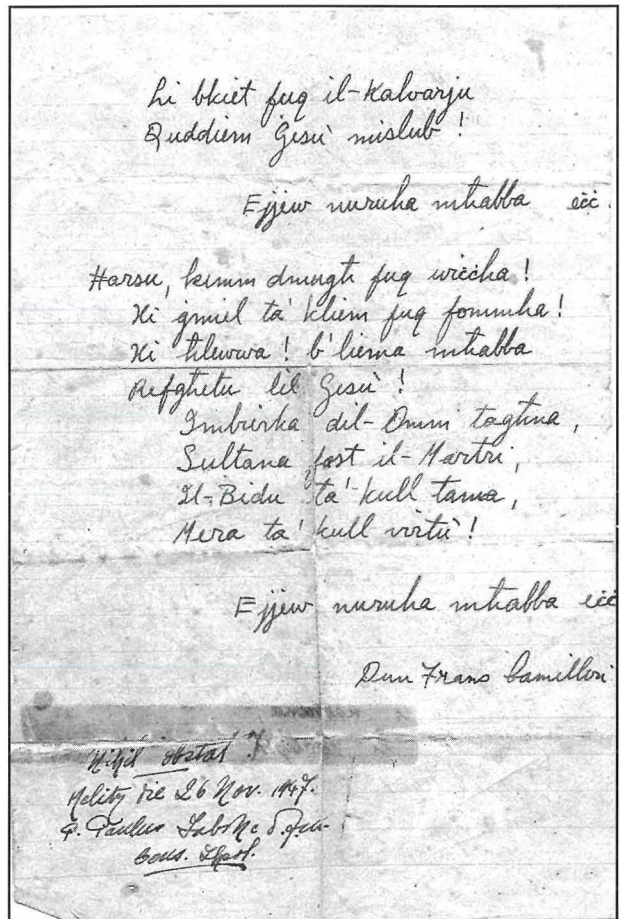 Li bkiet fuq il-Kalvarju
Quddiem Ġesù mislub!
Ejjew nuruha mħabba eċċ.
Ħarsu, kemm dmugħ fuq wiċċha!
Xi ġmiel ta' kliem fuq fommha!
Xi ħlewwa! b'liema mħabba
Refgħetu lil Ġesù!
Imbierka dil-Omm tagħna,
Sultana fost il-Martri,
Il-Bidu ta' kull tama,
Mera ta' kull virtù!
Ejjew nuruha mħabba eċċ
Dun Frans Camilleri
Nihil obstat
Melitæ die 26 Nov. 1947.
P. Paulus
Cens. Theol.